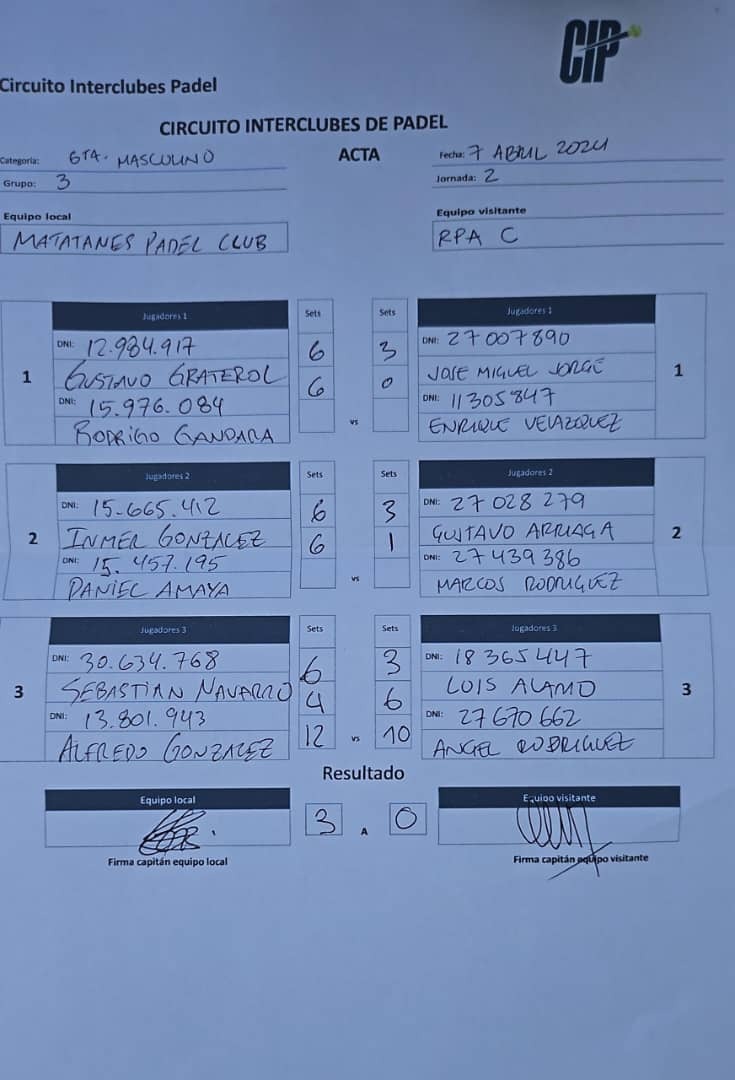 CIP
Circuito Interclubes Padel
CIRCUITO INTERCLUBES DE PADEL
ACTA
Categoria: 6TA. MASCULINO
Fecha: 7 ABRIL 2024
Grupo: 3
Jornada: 2
Equipo local
Equipo visitante
MATATANES PADEL CLUB
RPA C
Jugadores 1 Sets Sets Jugadores 1
DNI: 12.984.917 6 3 DNI: 27007890
1 GUSTAVO GRATEROL 6 0 JOSE MIGUEL JORGE 1
DNI: 15.976.084 DNI: 11305847
RODRIGO GANDARA vs ENRIQUE VELAZQUEZ
Jugadores 2 Sets Sets Jugadores 2
DNI: 15.665.412 6 3 DNI: 27 028 279
2 INMER GONZALEZ 6 1 GUSTAVO ARRIAGA 2
DNI: 15.457.195 DNI: 27 439 386
DANIEL AMAYA vs MARCOS RODRIGUEZ
Jugadores 3 Sets Sets Jugadores 3
DNI: 30.634.768 6 3 DNI: 18 365 447
3 SEBASTIAN NAVARRO 4 6 LUIS ALAMO 3
DNI: 13.801.943 DNI: 27 670 662
ALFREDO GONZALEZ 12 vs 10 ANGEL RODRIGUEZ
Resultado
Equipo local 3 A 0 Equipo visitante
Firma capitán equipo local
Firma capitán equipo visitante